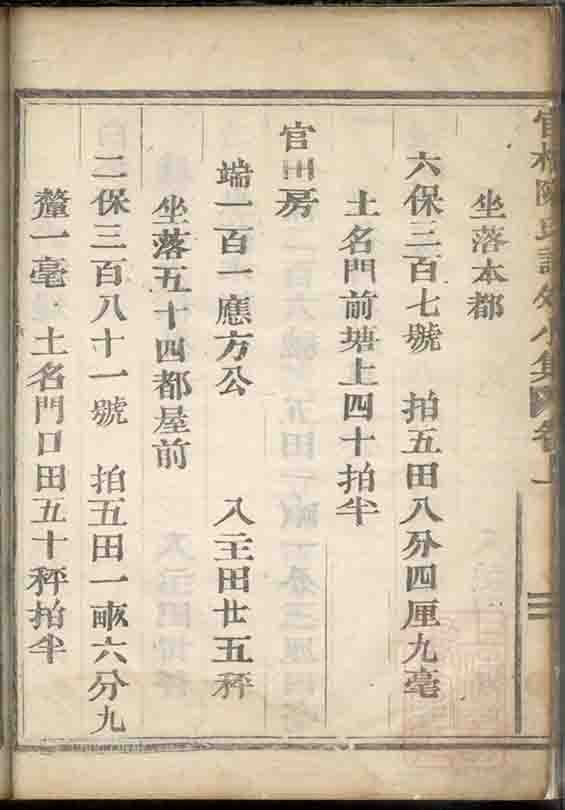 坐落本都
六保三百七號 拍五田八分四厘九毫
土名門前塘上四十拍半
官田房
端一百一應方公 入主田廿五秤
坐落五十四都屋前
二保三百八十一號 拍五田一畝六分九
釐一毫 土名門口田五十秤拍半